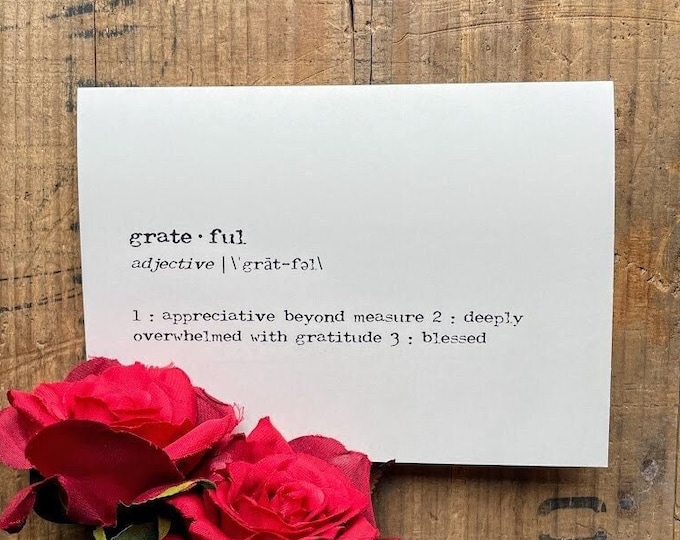 grate·ful
adjective | \ˈgrāt-fəl\
1 : appreciative beyond measure 2 : deeply
overwhelmed with gratitude 3 : blessed